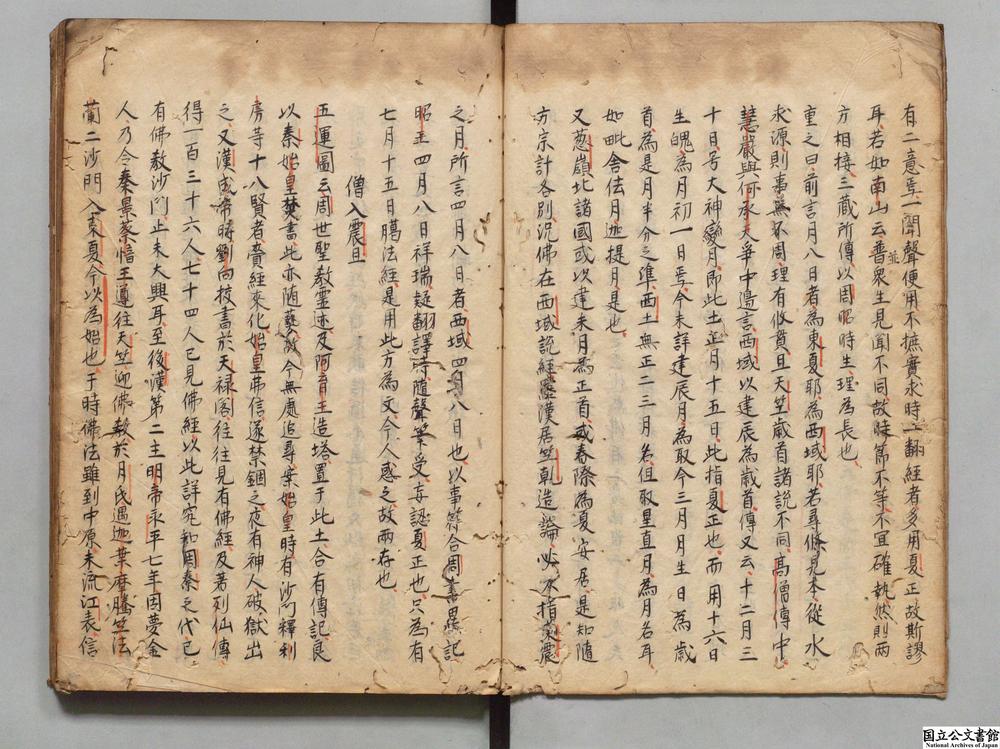 有二意焉一聞聲便用不摭實求時一翻經者多用夏正故斯謬
耳若如南山云普衆生見聞不同故時節不等不宜確執然則兩
並
方相接三蔵所傳以周昭時生理為長也
重之曰前言月八日者為東夏耶為西域耶若尋條見本從水
求源則事無不周理有攸貫且天竺歳首諸説不同高僧傳中
慧嚴與何承天爭中邊言西域以建辰為歳首傳又云十二月三
十日号大神變月即此土正月十五日此指夏正也而用十六日
生魄為月初一日焉今未詳建辰月為取今三月月生日為歳
首為是月半分之準西土無正二三月名但取星直月為月名耳
如毗舎佉月迦提月是也
又葱嶺北諸國或以建未月為正首或春際為夏安居是知隨
方宗計各別況佛在西域説經羅漢居竺乹造論必不指東震
之月所言四月八日者西域四月八日也以事符合周書異記
昭王四月八日祥瑞疑翻譯時隨聲筆受妄認夏正也只為有
七月十五日臈法經是用此方為文令人惑之故兩存也
僧入震旦
五運圖云周世聖教靈迹及阿育王造塔置于此土合有傳記良
以秦始皇焚書此亦隨爇故今無處追尋案始皇時有沙門釋利
房等十八賢者賷經來化始皇弗信遂禁錮之夜有神人破獄出
之又漢成帝時劉向挍書於天禄閣往往見有佛經及著列仙傳
得一百三十六人七十四人已見佛經以此詳究知周秦之代已
有佛教沙門止未大興耳至後漢第二主明帝永平七年因夢金
人乃令秦景蔡愔王遵往天竺迎佛教於月氏遇迦葉摩騰竺法
蘭二沙門入東夏今以為始也于時佛法雖到中原未流江表信
国立公文書館
National Archives of Japan